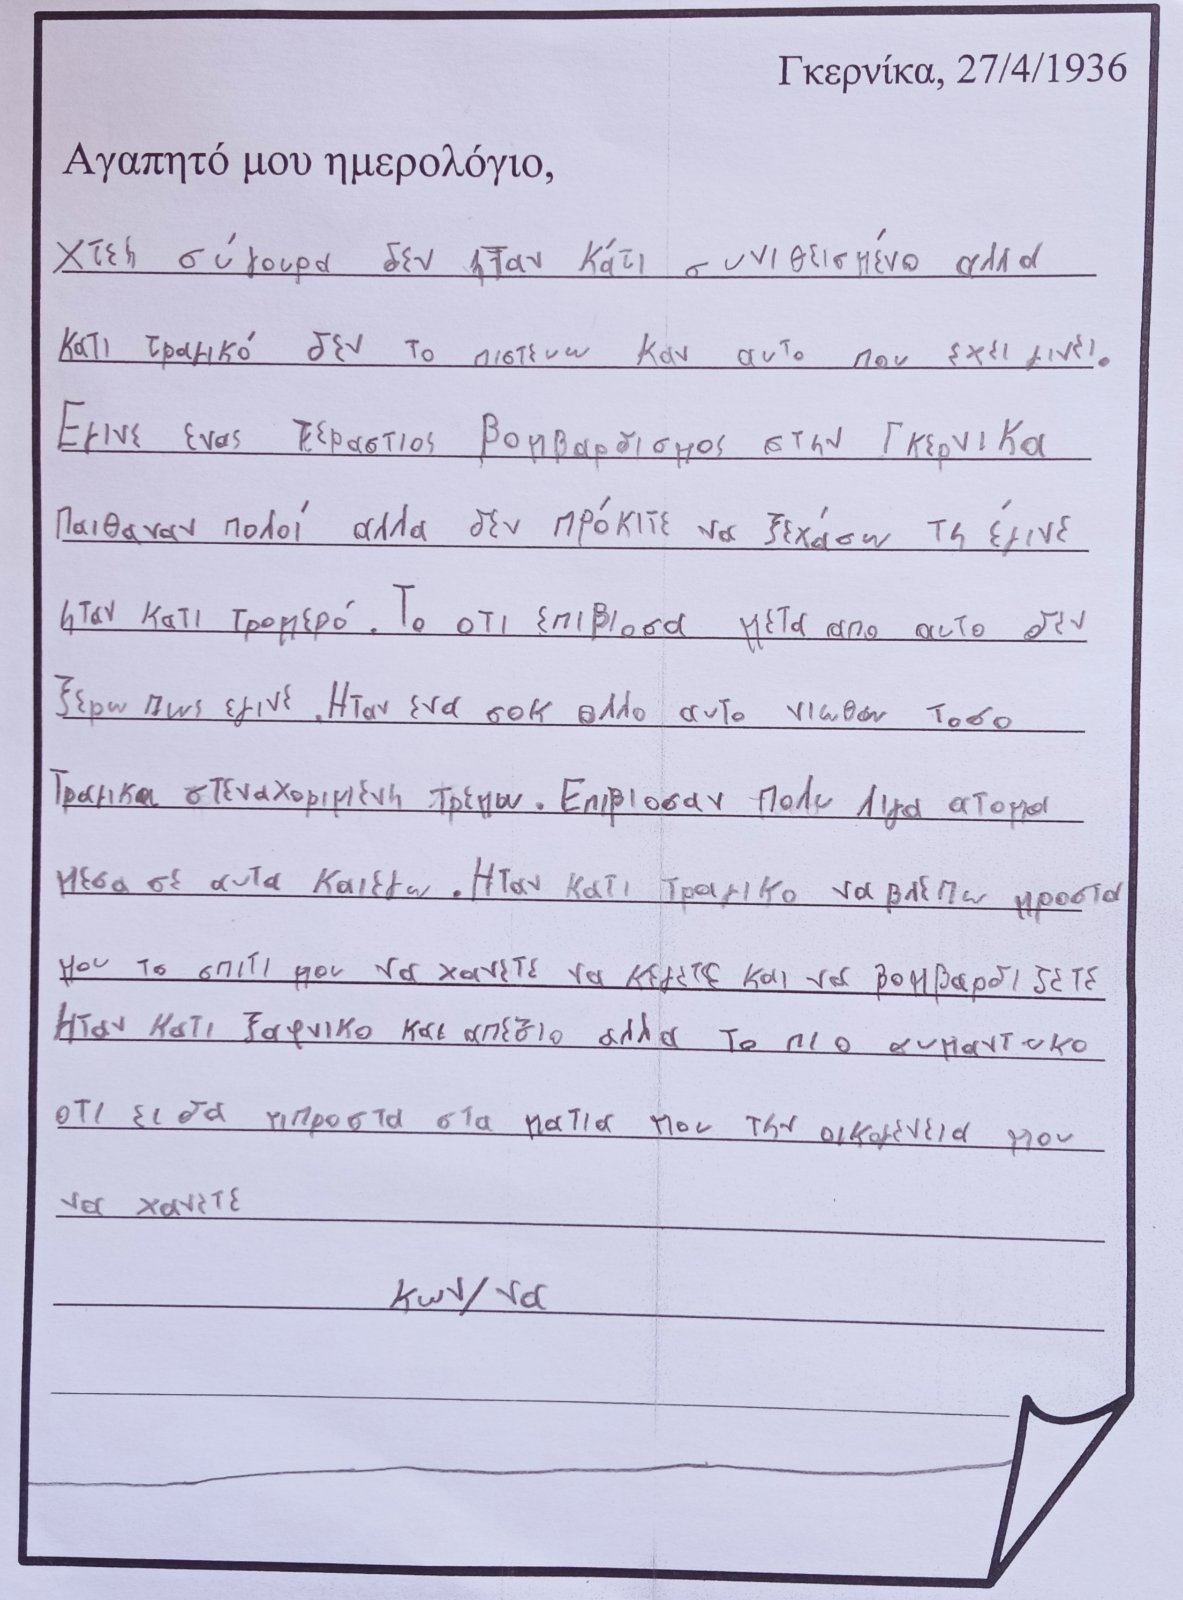 Γκερνίκα, 27/4/1936
Αγαπητό μου ημερολόγιο,
Χτεη σύγουρα δεν ηταν κάτι συνιθεισμένο αλλα
κατι τραγικό δεν το πιστευω καν αυτο που εχει γινει.
Εγινε ενας τεραστιος βομβαρδισμος στην Γκερνικα
Παιθαναν πολοί αλλα δεν πρόκιτε να ξεχάσω τη έγινε
ηταν κατι τρομερό. Το οτι επιβιοσα μετα απο αυτο δεν
ξερω πως εγινε. Ηταν ενα σοκ ολλο αυτο νιωθω τοσο
τραγικα στεναχοριμενη τρεμω. Επιβιοσαν πολυ λιγα ατομα
μεσα σε αυτα και εγω. Ηταν κατι τραγικο να βλεπω μροστα
μου το σπιτι μου να χανετε να κεγετε και να βομβαρδιζετε
Ηταν κατι ξαφνικο και απεξιο αλλα το πιο συμαντυκο
οτι ειδα μπροστα στα ματια μου την οικογενεια μου
να χανετε
κων/να